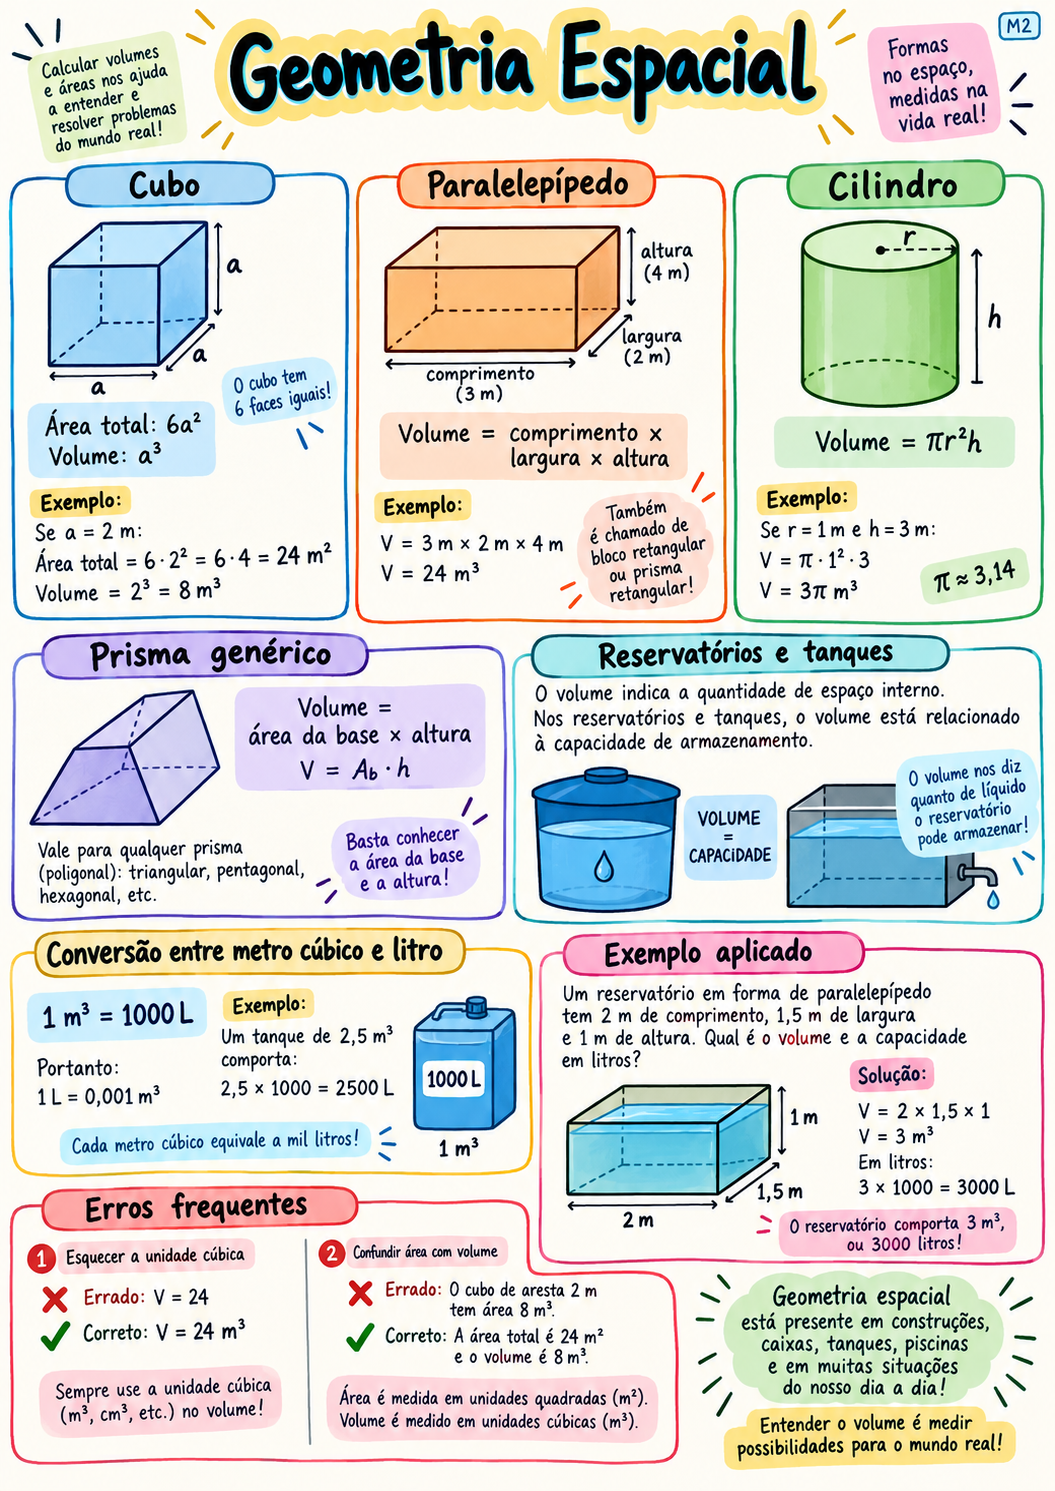 Calcular volumes
e áreas nos ajuda
a entender e
resolver problemas
do mundo real!
Geometria Espacial
Formas
no espaço,
medidas na
vida real!
M2
Cubo
a
a
a
O cubo tem
6 faces iguais!
Área total: 6a²
Volume: a³
Exemplo:
Se a = 2 m:
Área total = 6 · 2² = 6 · 4 = 24 m²
Volume = 2³ = 8 m³
Paralelepípedo
altura
(4 m)
largura
(2 m)
comprimento
(3 m)
Volume = comprimento x
largura x altura
Exemplo:
V = 3 m × 2 m × 4 m
V = 24 m³
Também
é chamado de
bloco retangular
ou prisma
retangular!
Cilindro
r
h
Volume = πr²h
Exemplo:
Se r = 1 m e h = 3 m:
V = π · 1² · 3
V = 3π m³
π ≈ 3,14
Prisma genérico
Volume =
área da base × altura
V = Ab · h
Vale para qualquer prisma
(poligonal): triangular, pentagonal,
hexagonal, etc.
Basta conhecer
a área da base
e a altura!
Reservatórios e tanques
O volume indica a quantidade de espaço interno.
Nos reservatórios e tanques, o volume está relacionado
à capacidade de armazenamento.
VOLUME
=
CAPACIDADE
O volume nos diz
quanto de líquido
o reservatório
pode armazenar!
Conversão entre metro cúbico e litro
1 m³ = 1000 L
Portanto:
1 L = 0,001 m³
Exemplo:
Um tanque de 2,5 m³
comporta:
2,5 × 1000 = 2500 L
1000 L
1 m³
Cada metro cúbico equivale a mil litros!
Exemplo aplicado
Um reservatório em forma de paralelepípedo
tem 2 m de comprimento, 1,5 m de largura
e 1 m de altura. Qual é o volume e a capacidade
em litros?
1 m
1,5 m
2 m
Solução:
V = 2 × 1,5 × 1
V = 3 m³
Em litros:
3 × 1000 = 3000 L
O reservatório comporta 3 m³,
ou 3000 litros!
Erros frequentes
1 Esquecer a unidade cúbica
Errado: V = 24
Correto: V = 24 m³
Sempre use a unidade cúbica
(m³, cm³, etc.) no volume!
2 Confundir área com volume
Errado: O cubo de aresta 2 m
tem área 8 m³.
Correto: A área total é 24 m²
e o volume é 8 m³.
Área é medida em unidades quadradas (m²).
Volume é medido em unidades cúbicas (m³).
Geometria espacial
está presente em construções,
caixas, tanques, piscinas
e em muitas situações
do nosso dia a dia!
Entender o volume é medir
possibilidades para o mundo real!